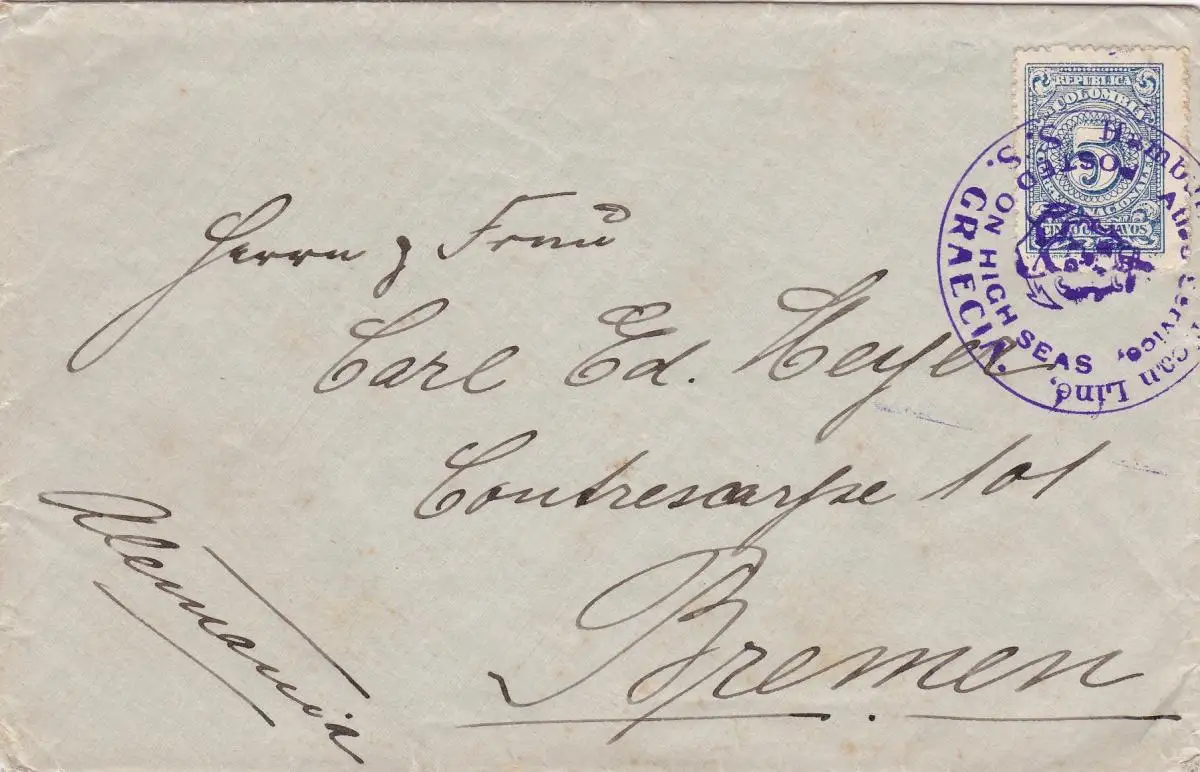 REPUBLICA
COLOMBIA
5
NACIONAL
CINCO CENTAVOS
Line,
Atlas Service,
S. S. GRAECIA.
POSTED ON HIGH SEAS
Herrn & Frau
Carl Ed. Meyer
Contrescarpe 101
Bremen
Alemania